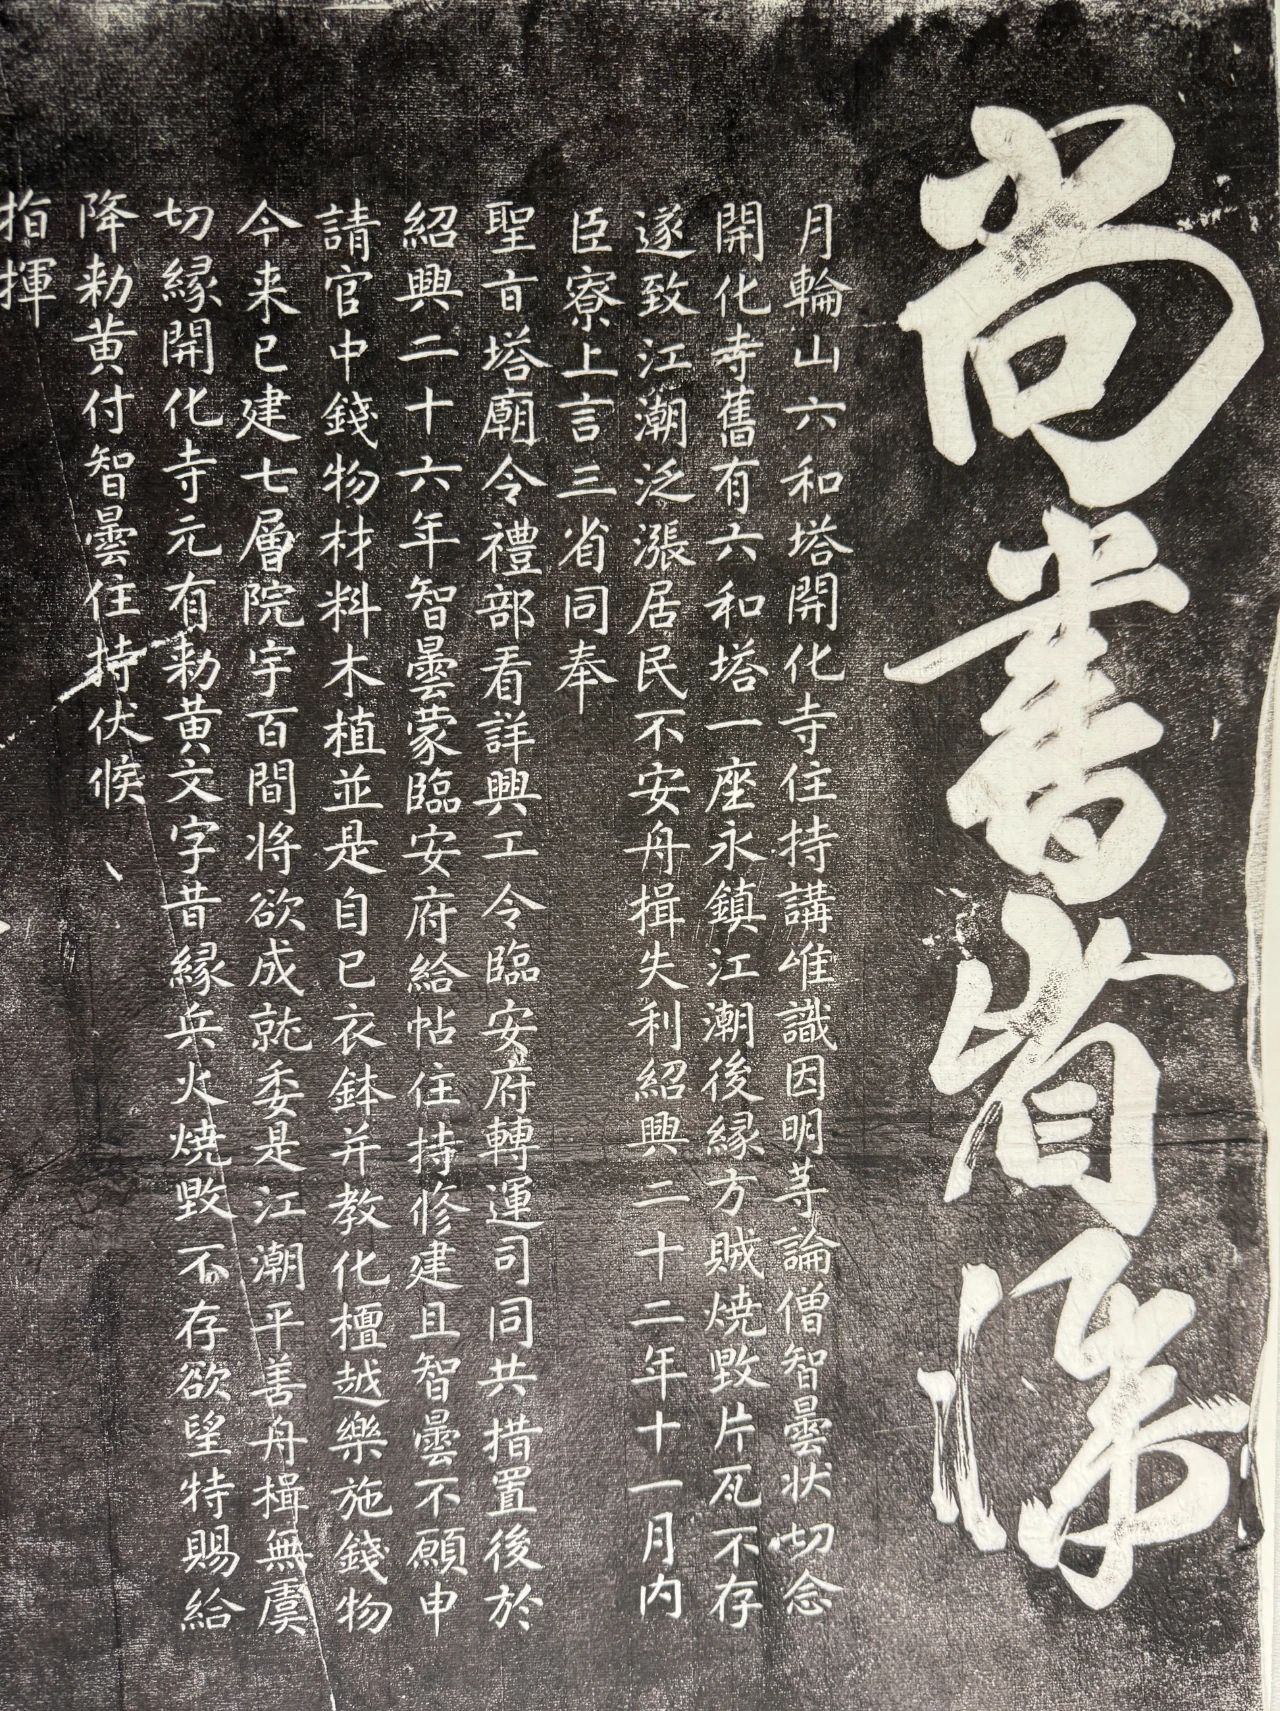 尚書省牒
月輪山六和塔開化寺住持講唯識因明等論僧智曇狀切念
開化寺舊有六和塔一座永鎮江潮後縁方賊燒毀片瓦不存
遂致江潮泛漲居民不安舟揖失利紹興二十二年十一月内
臣寮上言三省同奉
聖旨塔廟令禮部看詳興工令臨安府轉運司同共措置後於
紹興二十六年智曇蒙臨安府給帖住持修建且智曇不願申
請官中錢物材料木植並是自已衣鉢并教化檀越樂施錢物
今来已建七層院宇百間將欲成就委是江潮平善舟楫無虞
切縁開化寺元有勅黄文字昔縁兵火燒毀不存欲望特賜給
降勅黄付智曇住持伏候
指揮